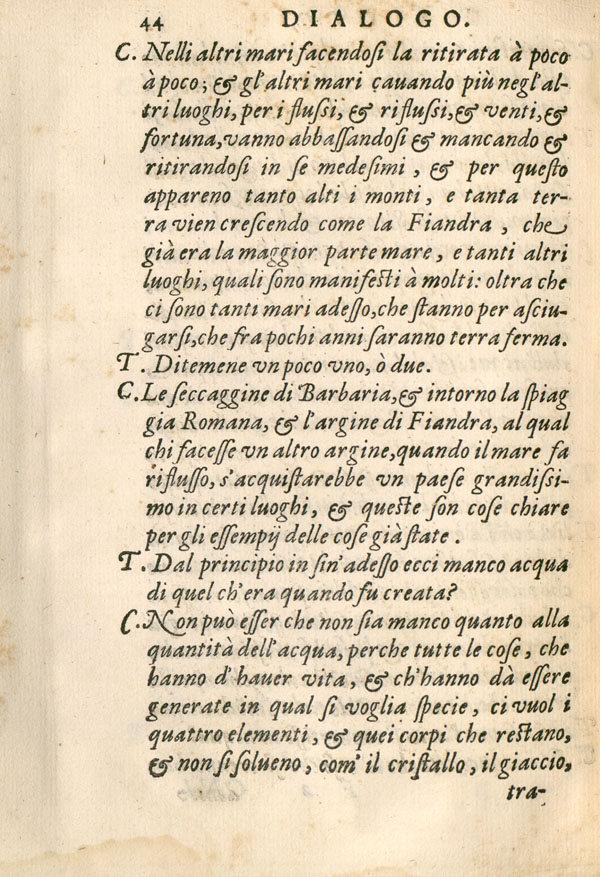 44 DIALOGO.
C. Nelli altri mari facendosi la ritirata à poco
à poco; & gl'altri mari cauando più negl'al-
tri luoghi, per i flussi, & riflussi, & venti, &
fortuna, vanno abbassandosi & mancando &
ritirandosi in se medesimi, & per questo
appareno tanto alti i monti, e tanta ter-
ra vien crescendo come la Fiandra, che
già era la maggior parte mare, e tanti altri
luoghi, quali sono manifesti à molti: oltra che
ci sono tanti mari adesso, che stanno per asciu-
garsi, che fra pochi anni saranno terra ferma.
T. Ditemene vn poco vno, ò due.
C. Le seccaggine di Barbaria, & intorno la spiag
gia Romana, & l'argine di Fiandra, al qual
chi facesse vn altro argine, quando il mare fa
riflusso, s'acquistarebbe vn paese grandissi-
mo in certi luoghi, & queste son cose chiare
per gli essempij delle cose già state.
T. Dal principio in sin'adesso ecci manco acqua
di quel ch'era quando fu creata?
C. Non può esser che non sia manco quanto alla
quantità dell'acqua, perche tutte le cose, che
hanno d'hauer vita, & ch'hanno dà essere
generate in qual si voglia specie, ci vuol i
quattro elementi, & quei corpi che restano,
& non si solueno, com' il cristallo, il giaccio,
tra-